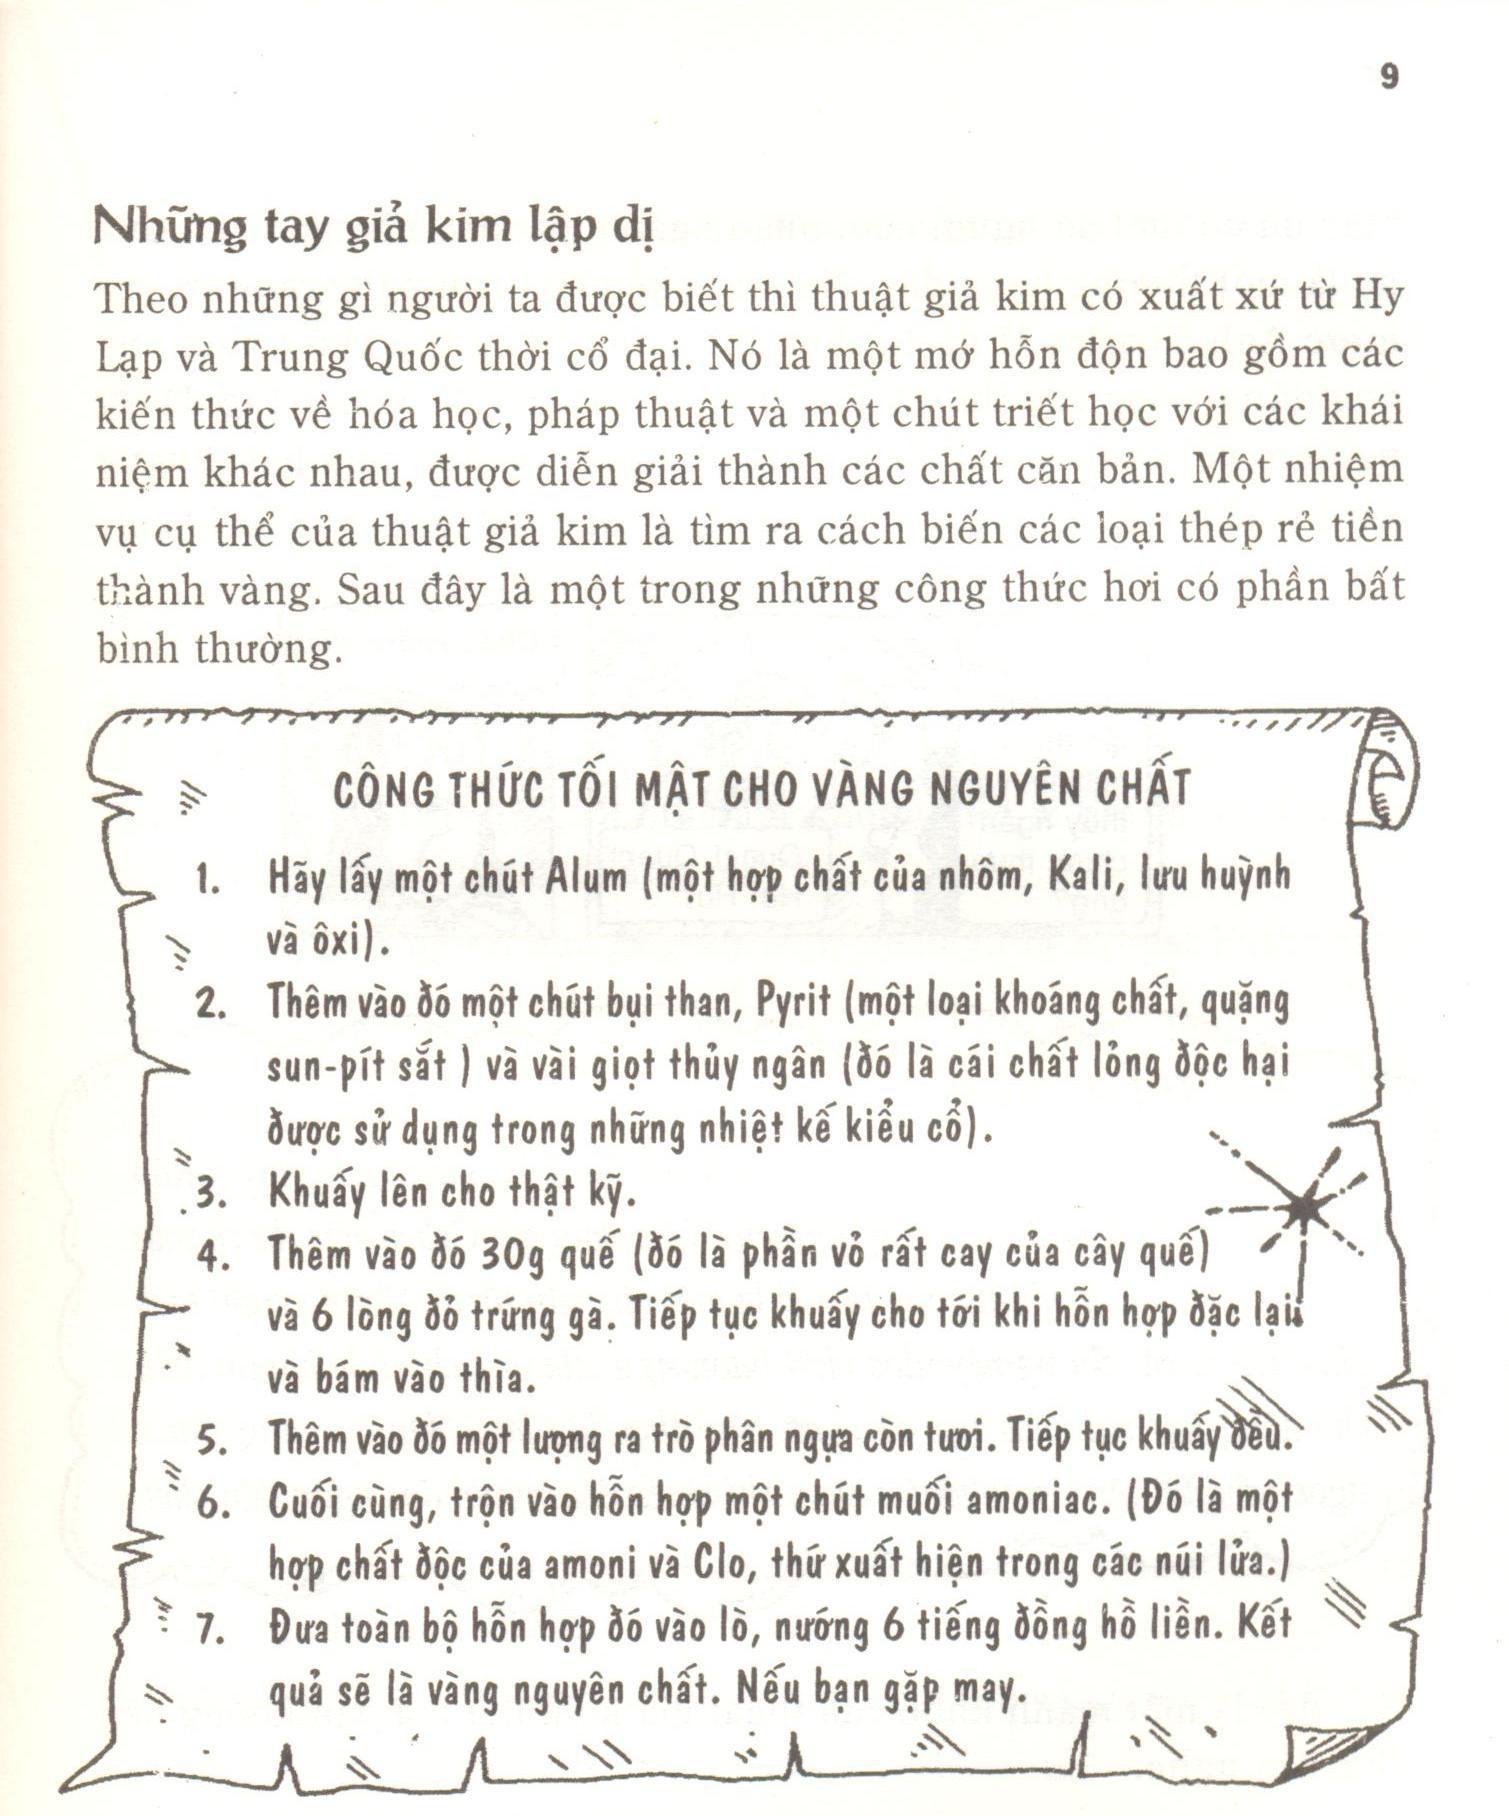 9
Những tay giả kim lập dị
Theo những gì người ta được biết thì thuật giả kim có xuất xứ từ Hy
Lạp và Trung Quốc thời cổ đại. Nó là một mớ hỗn độn bao gồm các
kiến thức về hóa học, pháp thuật và một chút triết học với các khái
niệm khác nhau, được diễn giải thành các chất căn bản. Một nhiệm
vụ cụ thể của thuật giả kim là tìm ra cách biến các loại thép rẻ tiền
thành vàng. Sau đây là một trong những công thức hơi có phần bất
bình thường.
CÔNG THỨC TỐI MẬT CHO VÀNG NGUYÊN CHẤT
1. Hãy lấy một chút Alum (một hợp chất của nhôm, Kali, lưu huỳnh
và ôxi).
2. Thêm vào đó một chút bụi than, Pyrit (một loại khoáng chất, quặng
sun-pít sắt ) và vài giọt thủy ngân (đó là cái chất lỏng độc hại
được sử dụng trong những nhiệt kế kiểu cổ).
3. Khuấy lên cho thật kỹ.
4. Thêm vào đó 30g quế (đó là phần vỏ rất cay của cây quế)
và 6 lòng đỏ trứng gà. Tiếp tục khuấy cho tới khi hỗn hợp đặc lại
và bám vào thìa.
5. Thêm vào đó một lượng ra trò phân ngựa còn tươi. Tiếp tục khuấy đều.
6. Cuối cùng, trộn vào hỗn hợp một chút muối amoniac. (Đó là một
hợp chất độc của amoni và Clo, thứ xuất hiện trong các núi lửa.)
7. Đưa toàn bộ hỗn hợp đó vào lò, nướng 6 tiếng đồng hồ liền. Kết
quả sẽ là vàng nguyên chất. Nếu bạn gặp may.